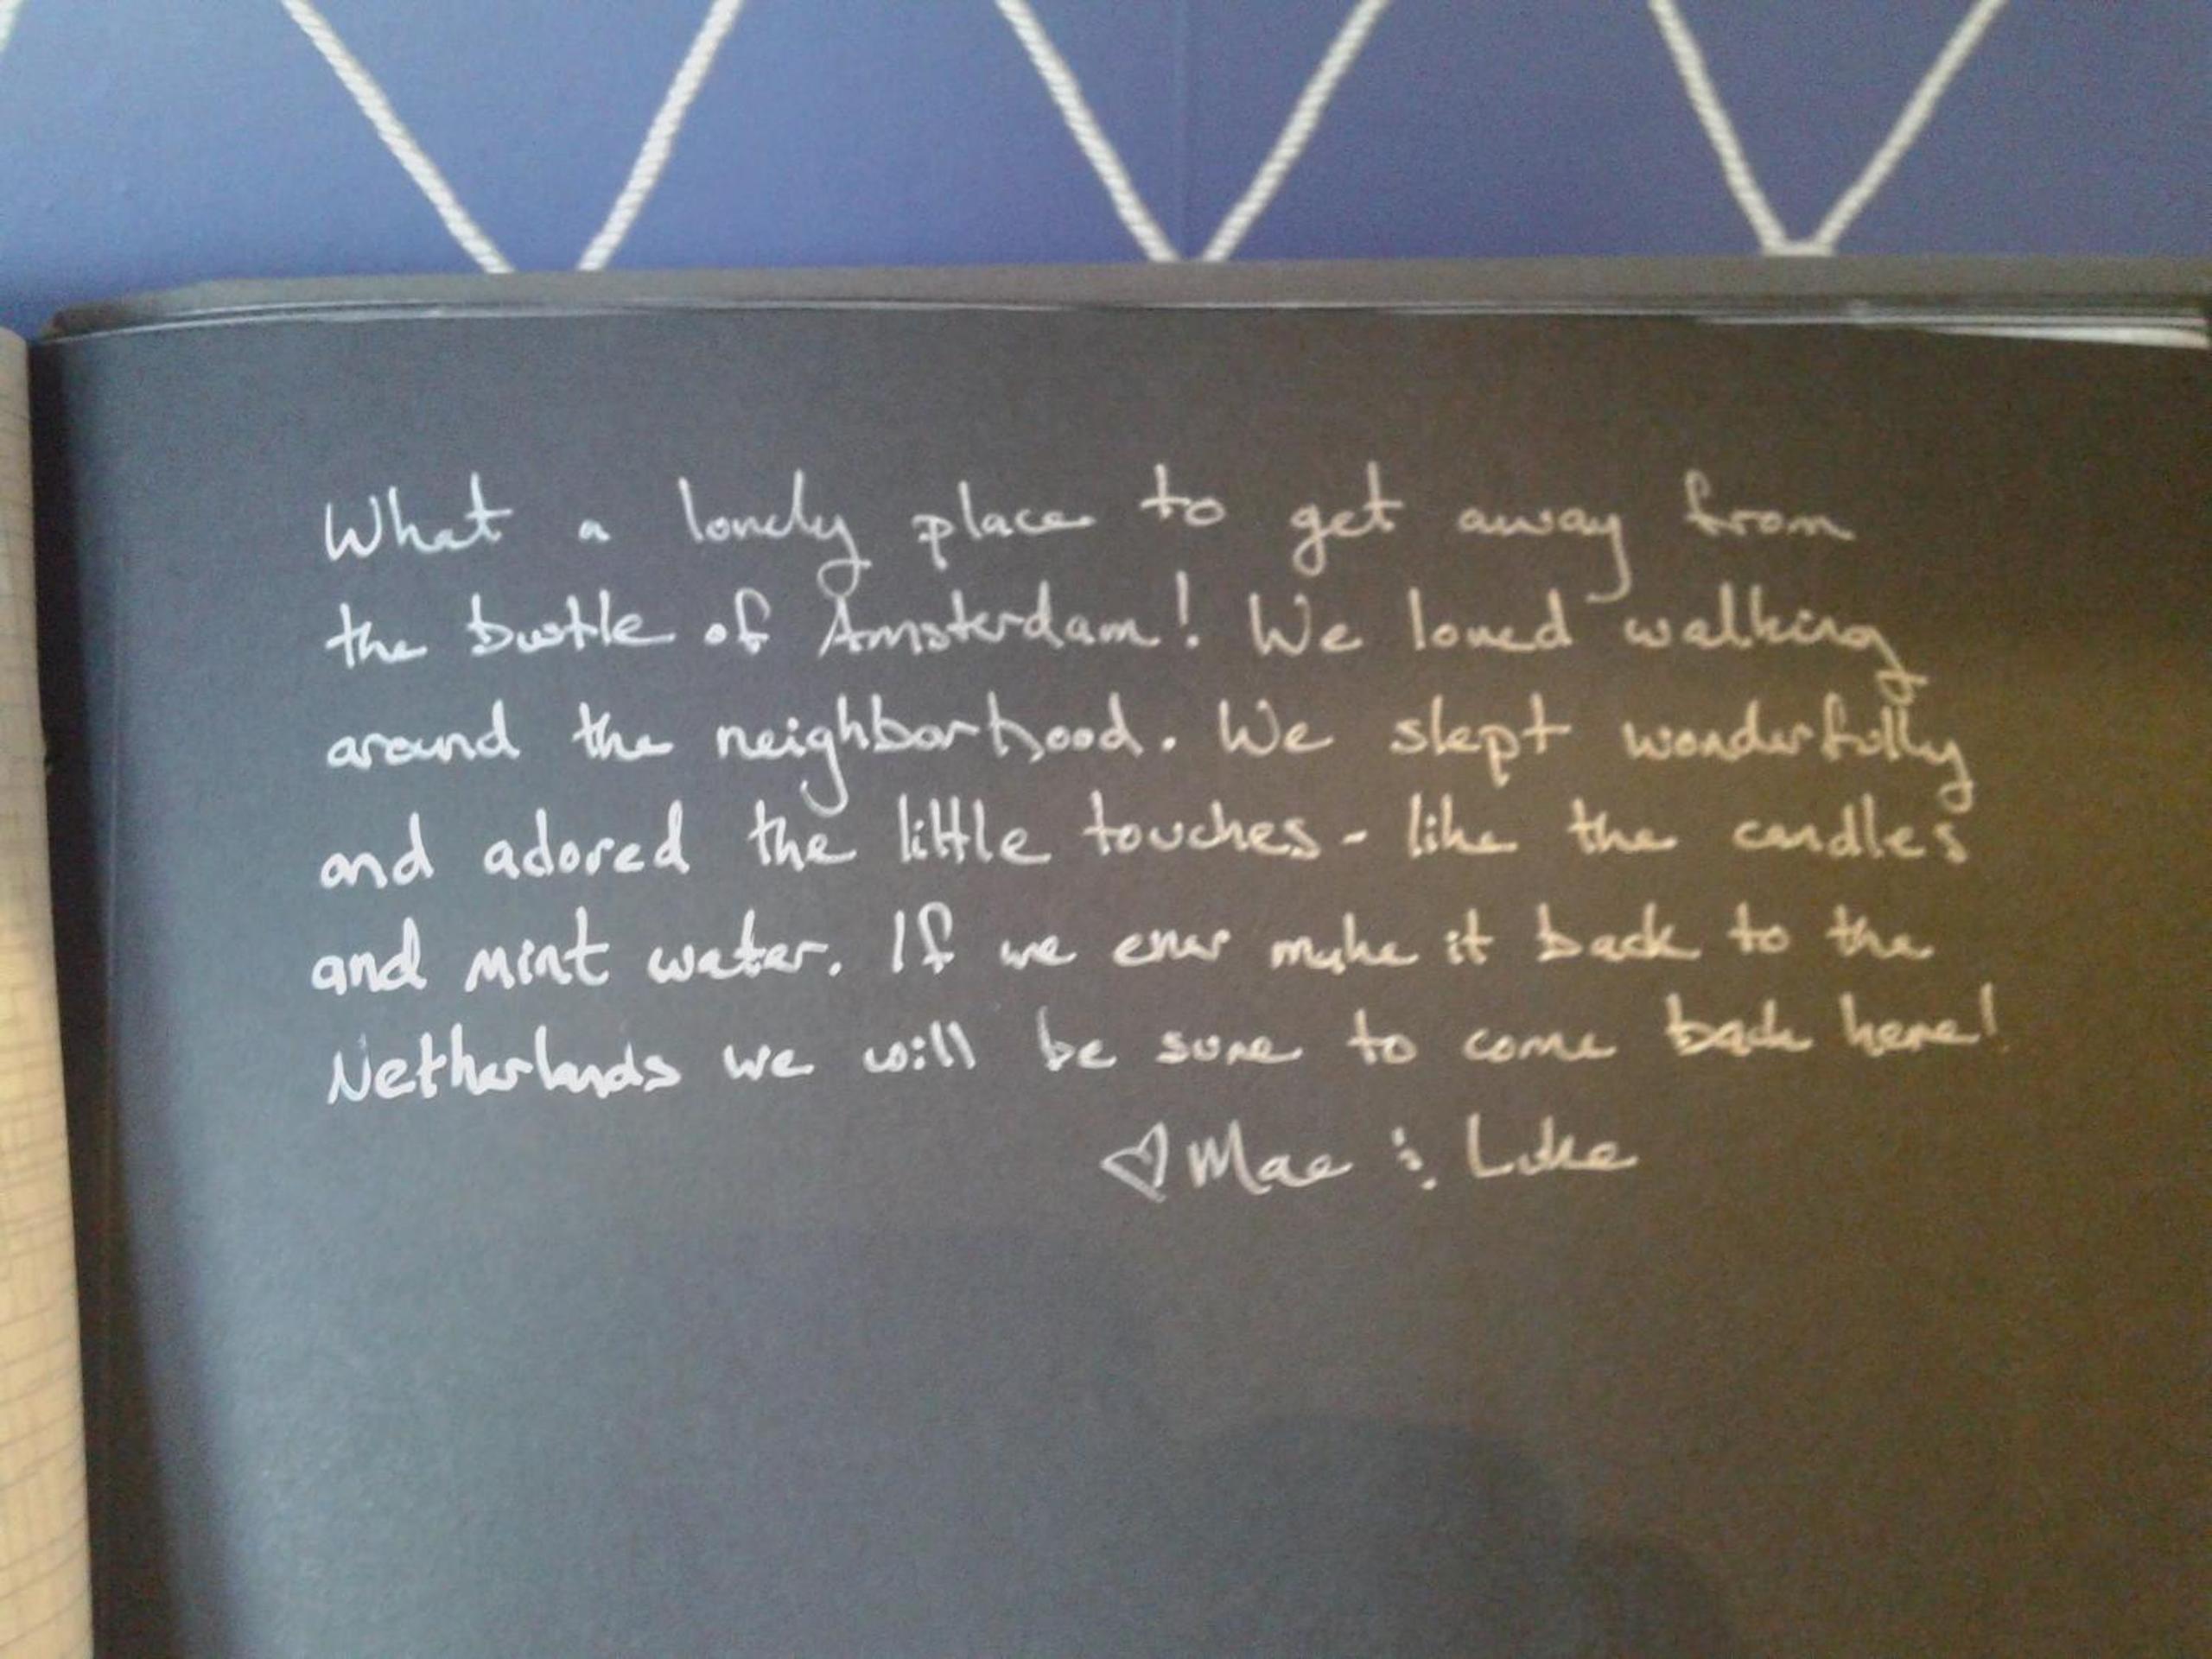 What a lovely place to get away from
the bustle of Amsterdam! We loved walking
around the neighborhood. We slept wonderfully
and adored the little touches - like the candles
and mint water. If we ever make it back to the
Netherlands we will be sure to come back here!
♡ Mae & Luke